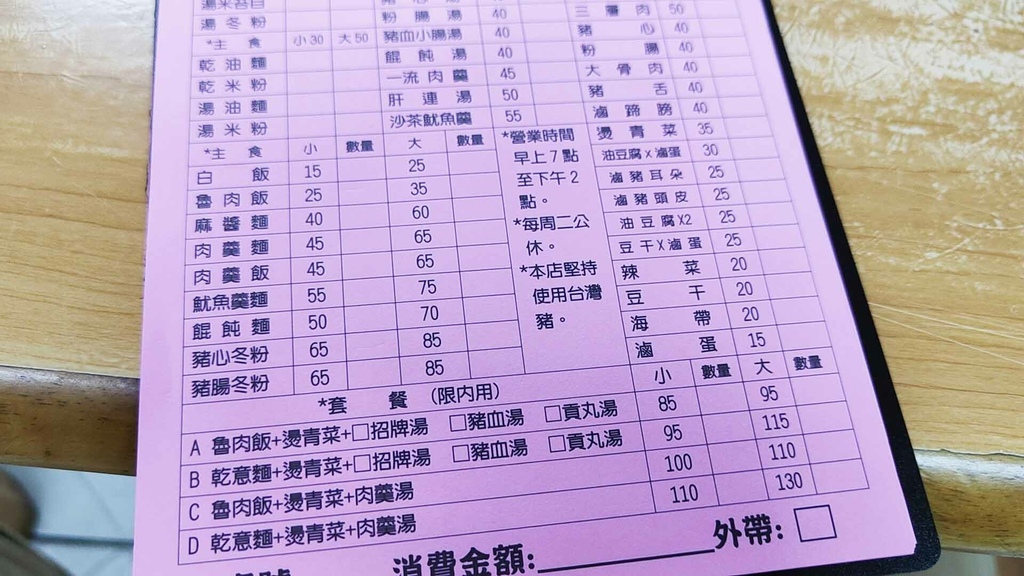 湯冬粉
*主食 小30 大50
乾油麵
乾米粉
湯油麵
湯米粉
*主食 小 數量 大 數量
白飯 15 25
魯肉飯 25 35
麻醬麵 40 60
肉羹麵 45 65
肉羹飯 45 65
魷魚羹麵 55 75
餛飩麵 50 70
豬心冬粉 65 85
豬腸冬粉 65 85
粉腸湯 40
豬血小腸湯 40
餛飩湯 40
一流肉羹 45
肝連湯 50
沙茶魷魚羹 55
*營業時間
早上7點
至下午2
點。
*每周二公
休。
*本店堅持
使用台灣
豬。
三層肉 50
豬心 40
粉腸 40
大骨肉 40
豬舌 40
滷蹄膀 40
燙青菜 35
油豆腐X滷蛋 30
滷豬耳朵 25
滷豬頭皮 25
油豆腐X2 25
豆干X滷蛋 25
辣菜 20
豆干 20
海帶 20
滷蛋 15
*套餐(限內用) 小 數量 大 數量
A 魯肉飯+燙青菜+□招牌湯 □豬血湯 □貢丸湯 85 95
B 乾意麵+燙青菜+□招牌湯 □豬血湯 □貢丸湯 95 115
C 魯肉飯+燙青菜+肉羹湯 100 110
D 乾意麵+燙青菜+肉羹湯 110 130
消費金額: 外帶:□